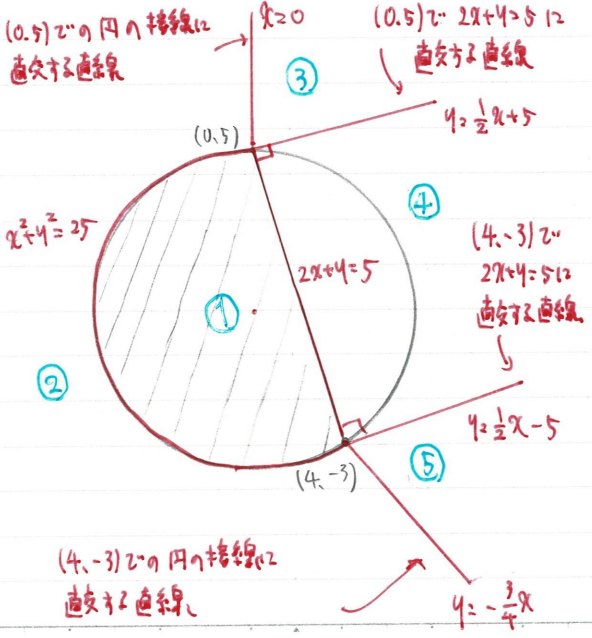 (0.5)での円の接線に
直交する直線
x=0
(0.5)で 2x+y=5に
直交する直線
③
y=1/2x+5
(0.5)
④
x²+y²=25
(4.-3)で
2x+y=5に
直交する直線
2x+y=5
①
②
y=1/2x-5
(4.-3)
⑤
(4.-3)での円の接線に
直交する直線
y=-3/4x